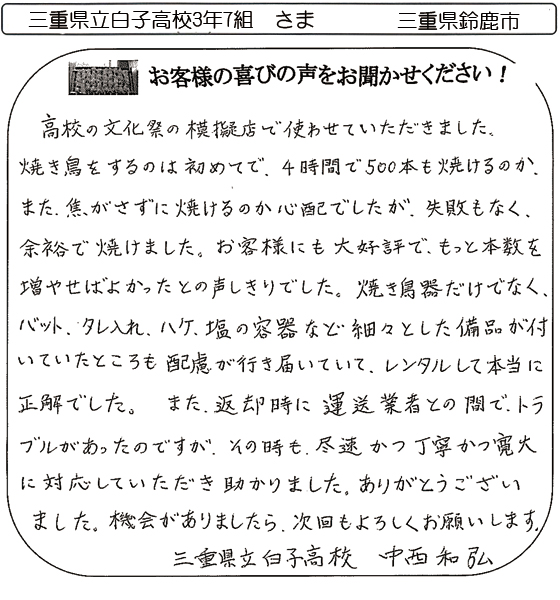 三重県立白子高校3年7組 さま 三重県鈴鹿市
お客様の喜びの声をお聞かせください！
高校の文化祭の模擬店で使わせていただきました。
焼き鳥をするのは初めてで、4時間で500本も焼けるのか、
また、焦がさずに焼けるのか心配でしたが、失敗もなく、
余裕で焼けました。お客様にも大好評で、もっと本数を
増やせばよかったとの声しきりでした。焼き鳥器だけでなく、
バット、タレ入れ、ハケ、塩の容器など細々とした備品が付
いていたところも配慮が行き届いていて、レンタルして本当に
正解でした。 また、返却時に運送業者との間で、トラ
ブルがあったのですが、その時も、尽速かつ丁寧かつ寛大
に対応していただき助かりました。ありがとうござい
ました。機会がありましたら、次回もよろしくお願いします。
三重県立白子高校 中西和弘